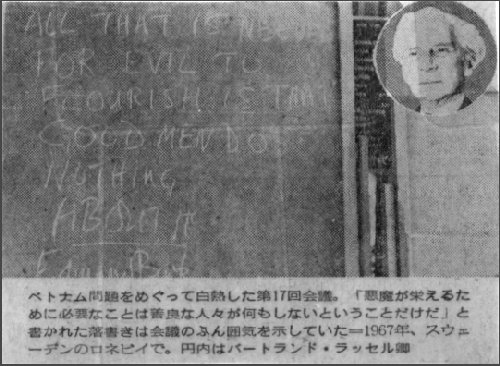 ALL THAT IS
FOR EVIL TO
FLOURISH IS THAT
GOOD MEN DO
NOTHING
ABOUT IT
ベトナム問題をめぐって白熱した第17回会議。「悪魔が栄えるため
に必要なことは善良な人々が何もしないということだけだ」と
書かれた落書きは会議のふん囲気を示していた＝1967年、スウェ
ーデンのロネビイで。円内はバートランド・ラッセル卿